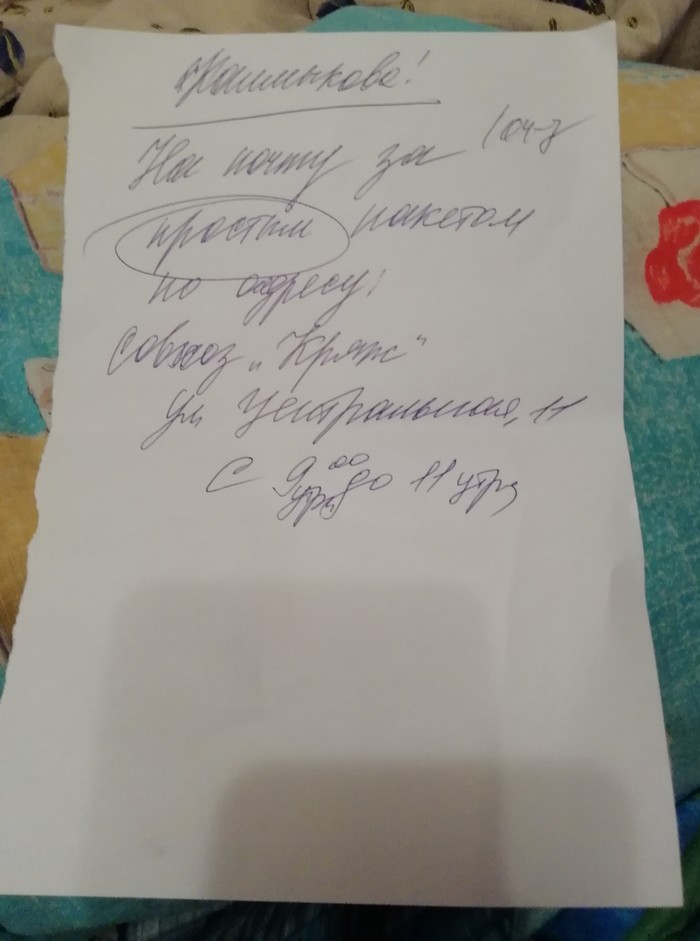 Калмыкова!
На почту за
простым пакетом
по адресу:
Совхоз „Кряж“
ул Центральная, 11
С 9 00 утра до 11 утра